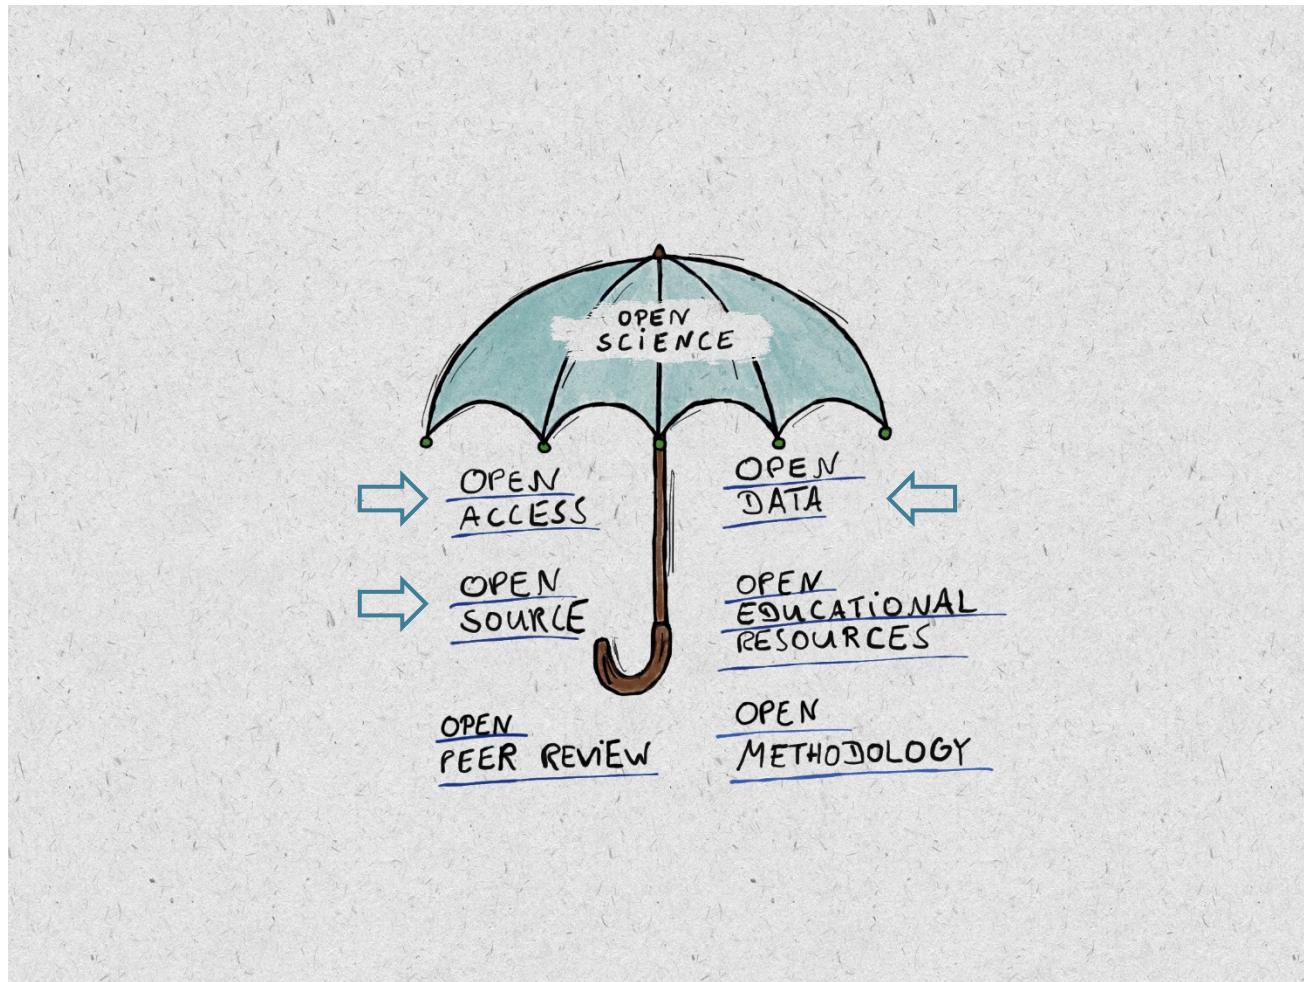 OPEN
SCiENCE
OPEN
ACCESS
OPEN
SOURCE
OPEN
PEER REViEW
OPEN
DATA
OPEN
EDUCATiONAL
RESOURCES
OPEN
METHODOLOGY